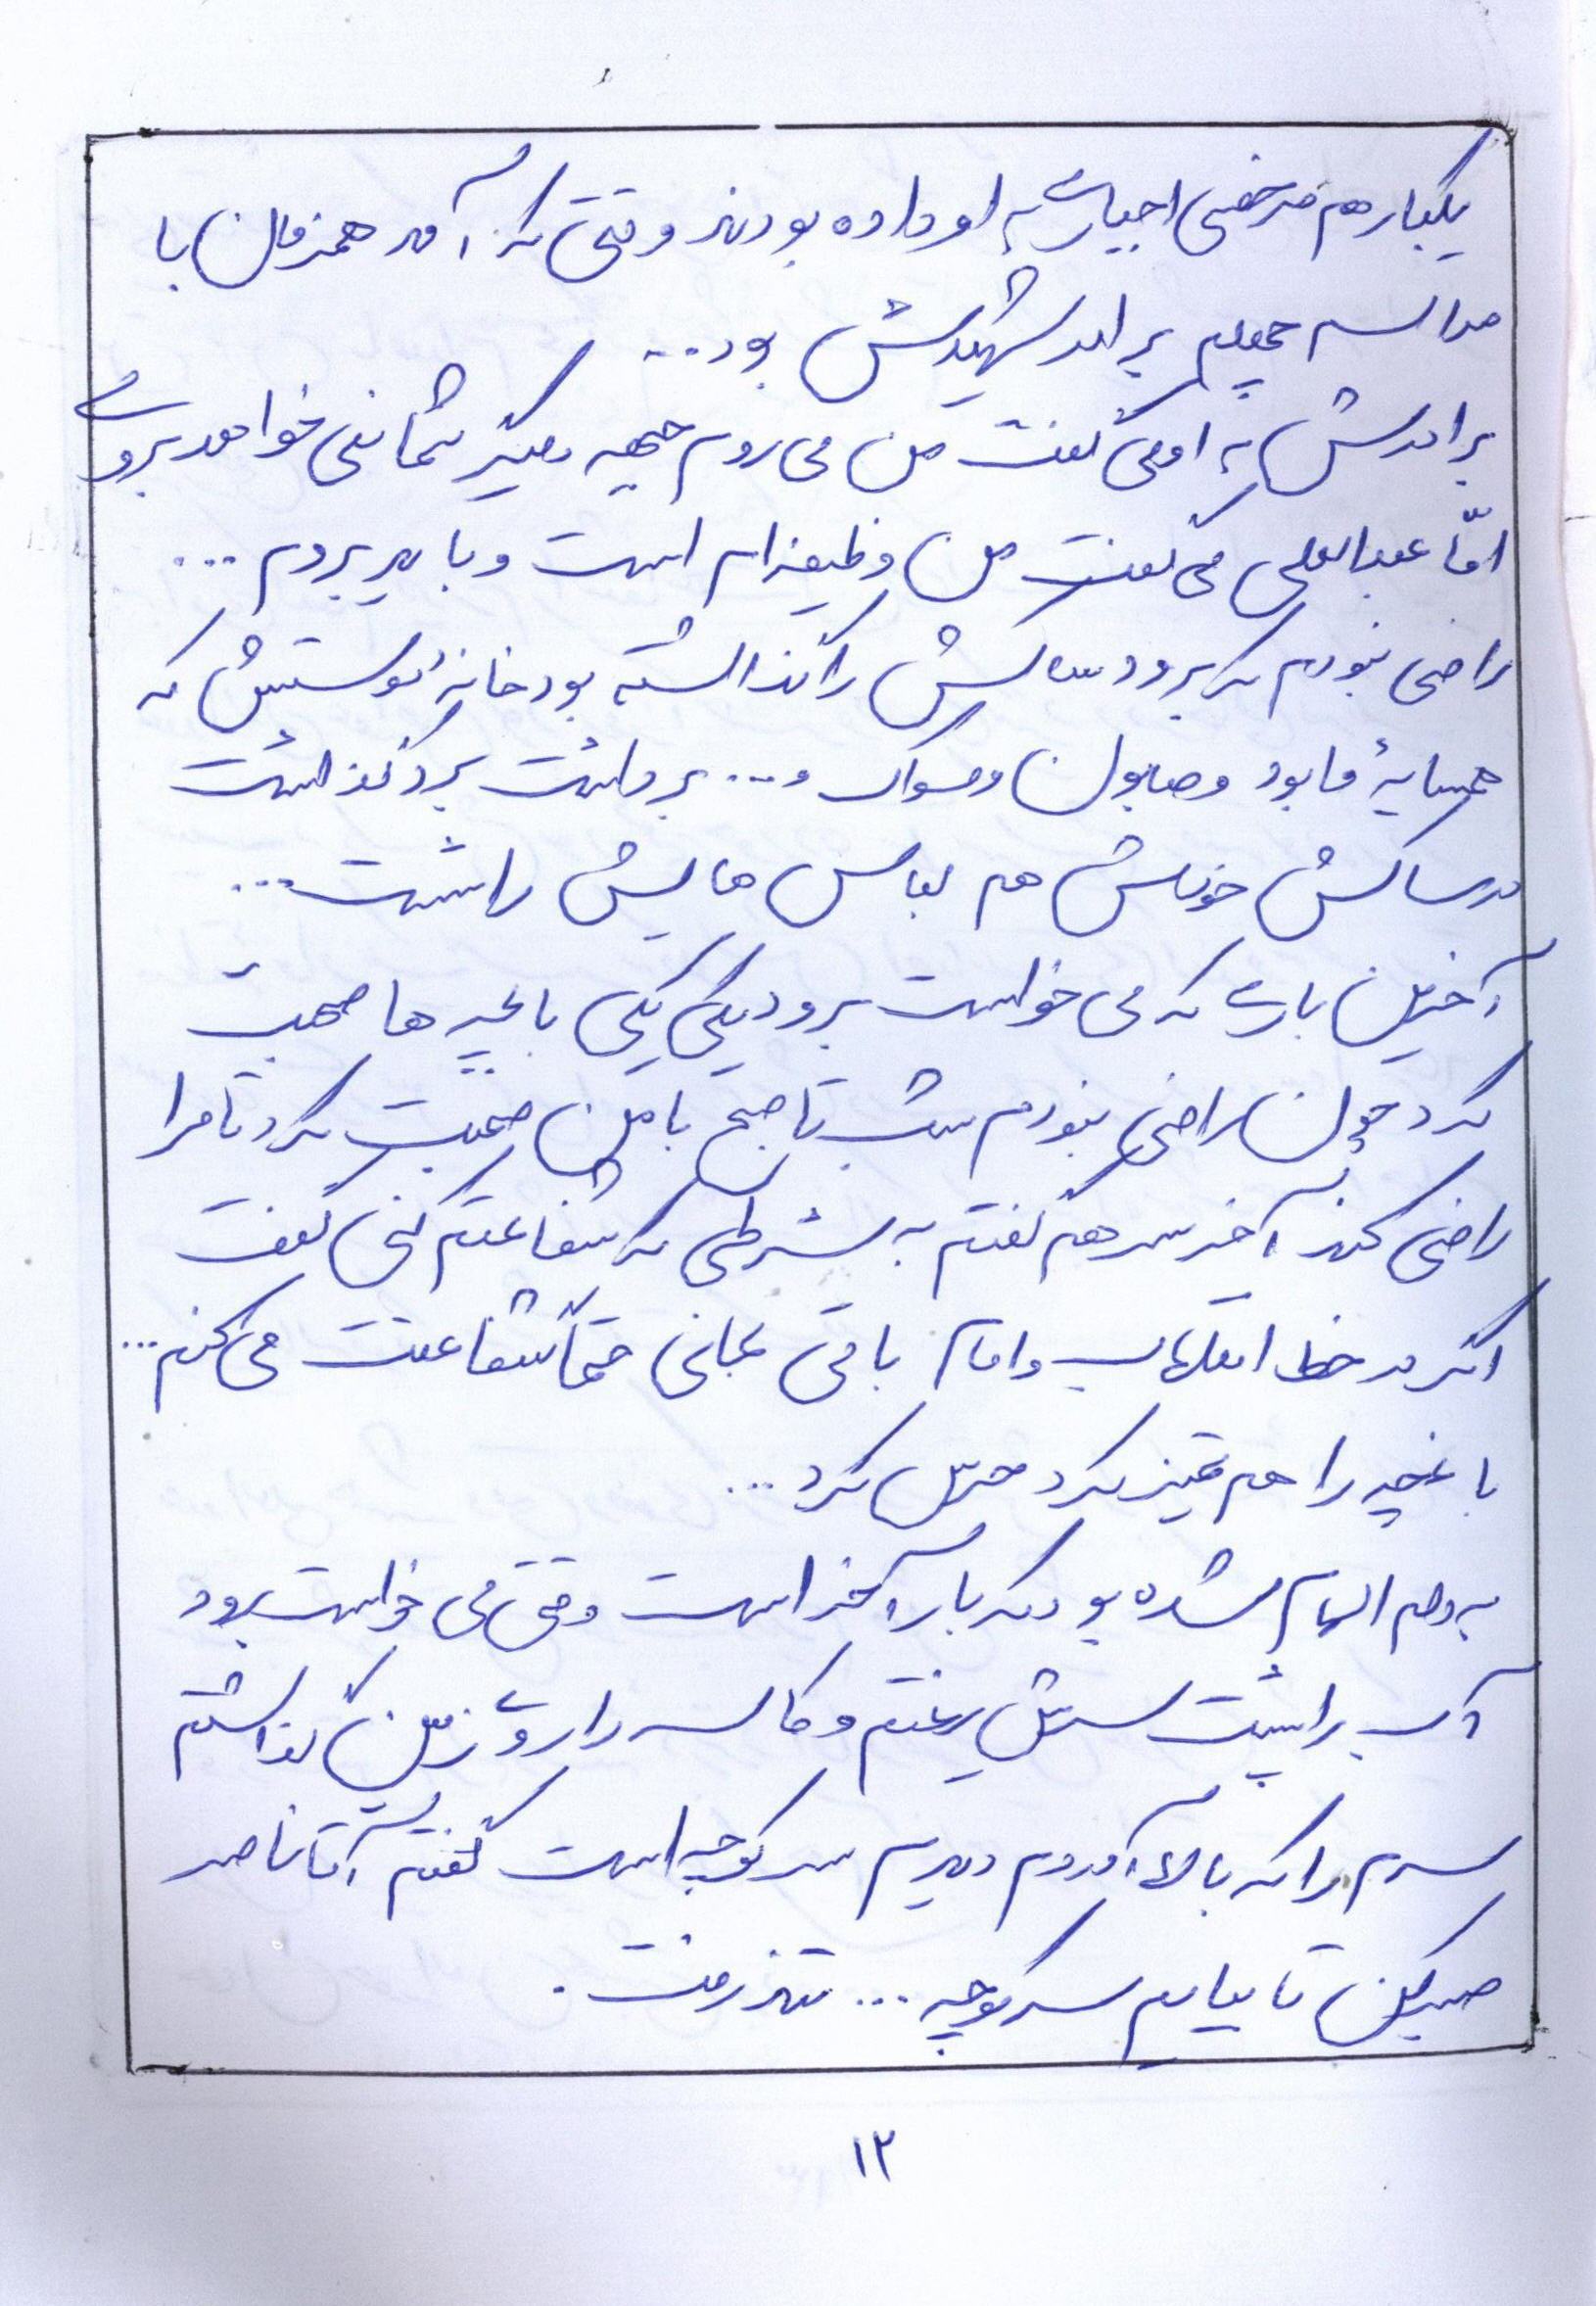 یکبار هم مرخصی اجباری به او داده بودند وقتی که آمد همزمان با
مراسم چهلم برادر شهیدش بود...
برادرش به او می گفت من می روم جبهه دیگر شما نمی خواهد بروی
امّا عبدالعلی می گفت من وظیفه ام است و باید بروم ...
راضی نبودم که برود ساکش را گذاشته بود خانهٔ دوستش که
همسایهٔ ما بود و صابون و مسواک و... برداشت برد گذاشت
در ساکش خودش هم لباس هایش را شست...
آخرین باری که می خواست برود یکی یکی با بچه ها صحبت
کرد چون راضی نبودم شب تا صبح با من صحبت کرد تا مرا
راضی کند آخر سر هم گفتم به شرطی که شفاعتم کنی گفت
اگر در خط انقلاب و امام باقی بمانی حتماً شفاعتت می کنم...
باغچه را هم تمیز کرد هرس کرد ...
به دلم الهام شده بود که بار آخر است وقتی می خواست برود
آب را پشت سرش ریختم و کاسه را روی زمین گذاشتم
سرم را که بالا آوردم دیدم سر کوچه است گفتم آقا ناصر
صبر کن تا بیایم سر کوچه ... تند رفت.
۱۲